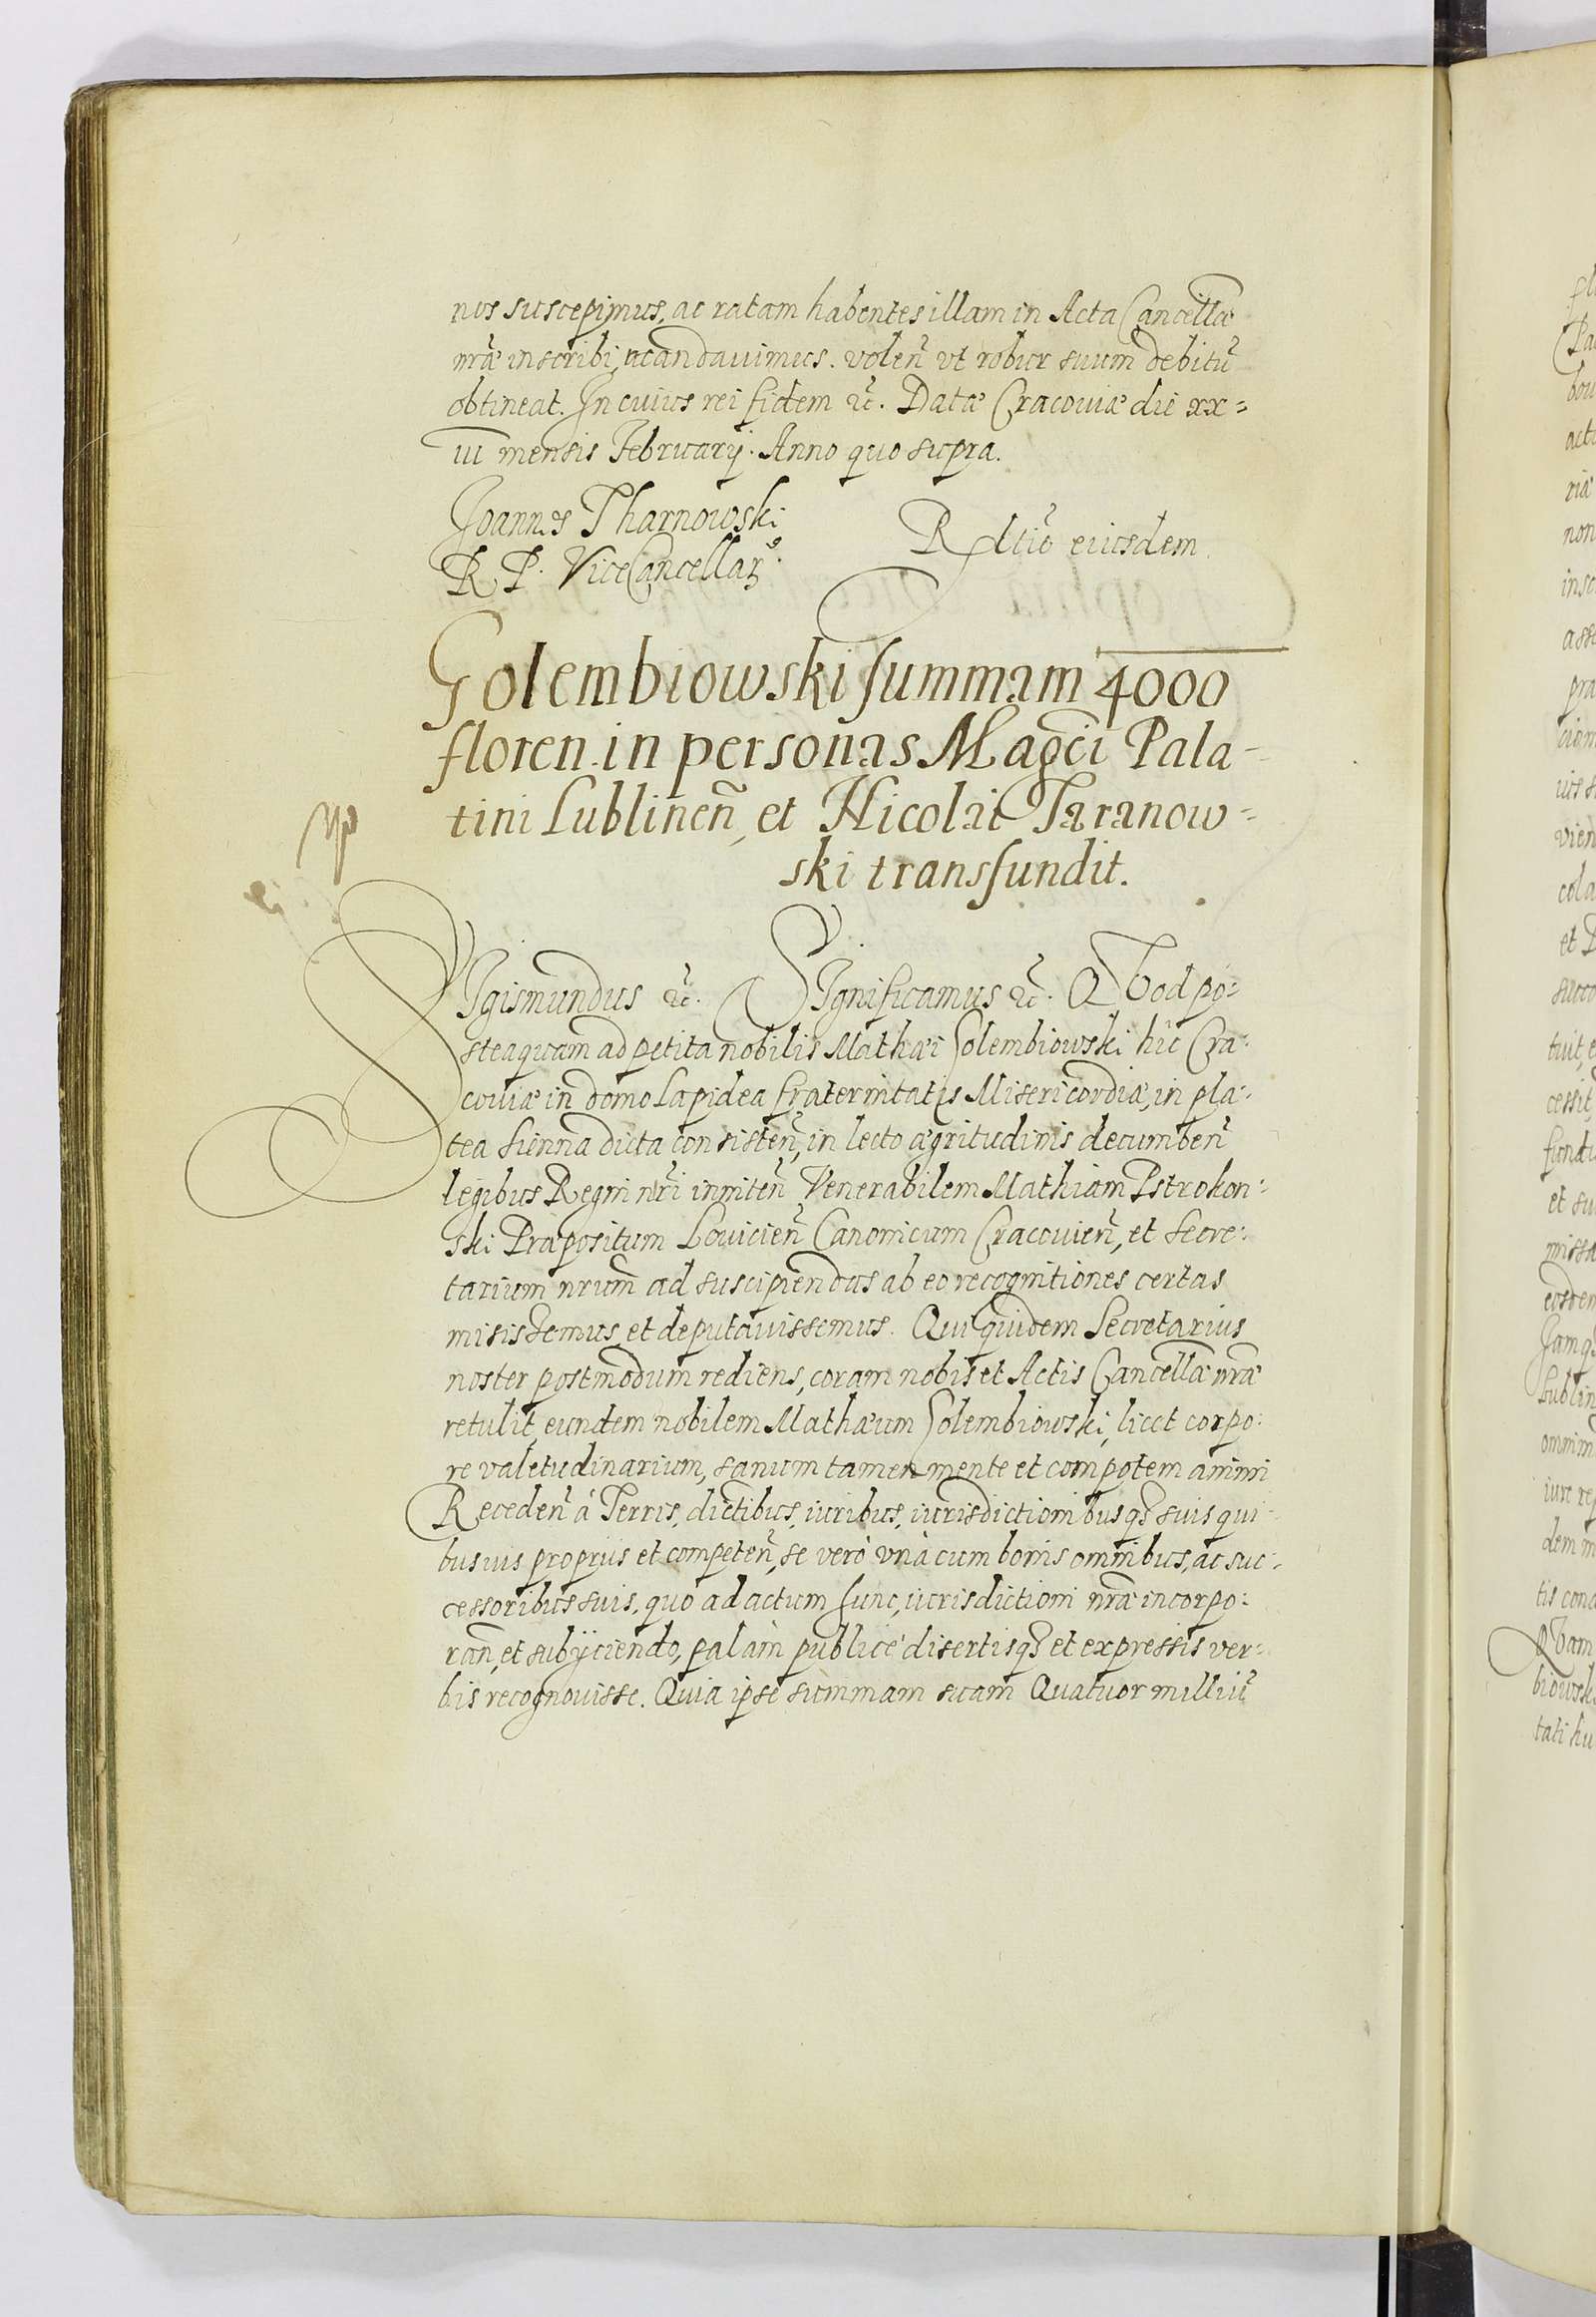 nos suscepimus, ac ratam habentes illam in Acta Cancellæ
nr̃æ inscribi mandauimus. volen̄ vt robur suum debitũ
obtineat. In cuius rei fidem ꝛc̃. Datæ Cracouiæ die xx=
iii mensis Februarij. Anno quo supra.
Joannes Tharnowski
R. P. ViceCancellar9.
Rltio eiusdem.
Golembiowski summam 4000
floren. in personas Magci Pala-
tini Lublinen̄, et Nicolai Taranow=
ski transfundit.
SIgismundus ꝛc̃. SIgnificamus ꝛc̃. Quod po:
steaquam ad petita nobilis Mathæi Golembiowski hic Cra:
couiæ in domo Lapidea fraternitatis Misericordiæ, in pla:
tea Sienna dicta consisten̄, in lecto ægritudinis decumben̄
legibus Regni nr̃i inniten̄ Venerabilem Mathiam Pstrokon:
ski Præpositum Louicien̄ Canonicum Cracouien̄, et Secre:
tarium nrum̃ ad suscipiendas ab eo recognitiones certas
misissemus et deputauissemus. Qui quidem Secretarius
noster postmodum rediens, coram nobis et Actis Cancellæ nr̃æ
retulit, eundem nobilem Mathæum Golembiowski, licet corpo:
re valetudinarium, sanum tamen mente et compotem animi
Receden̄ á Terris, distibus, iuribus, iurisdictionibusqȝ suis qui:
busuis proprijs et competen̄, se verò vnà cum bonis omnibus, ac suc:
cessoribus suis, quo ad actum hunc, iurisdictioni nr̃æ incorpo:
ran̄, et subijciendo, palàm publicè disertisqȝ et expressis ver:
bis recognouisse. Quia ipse summam suam Quatuor milliũ